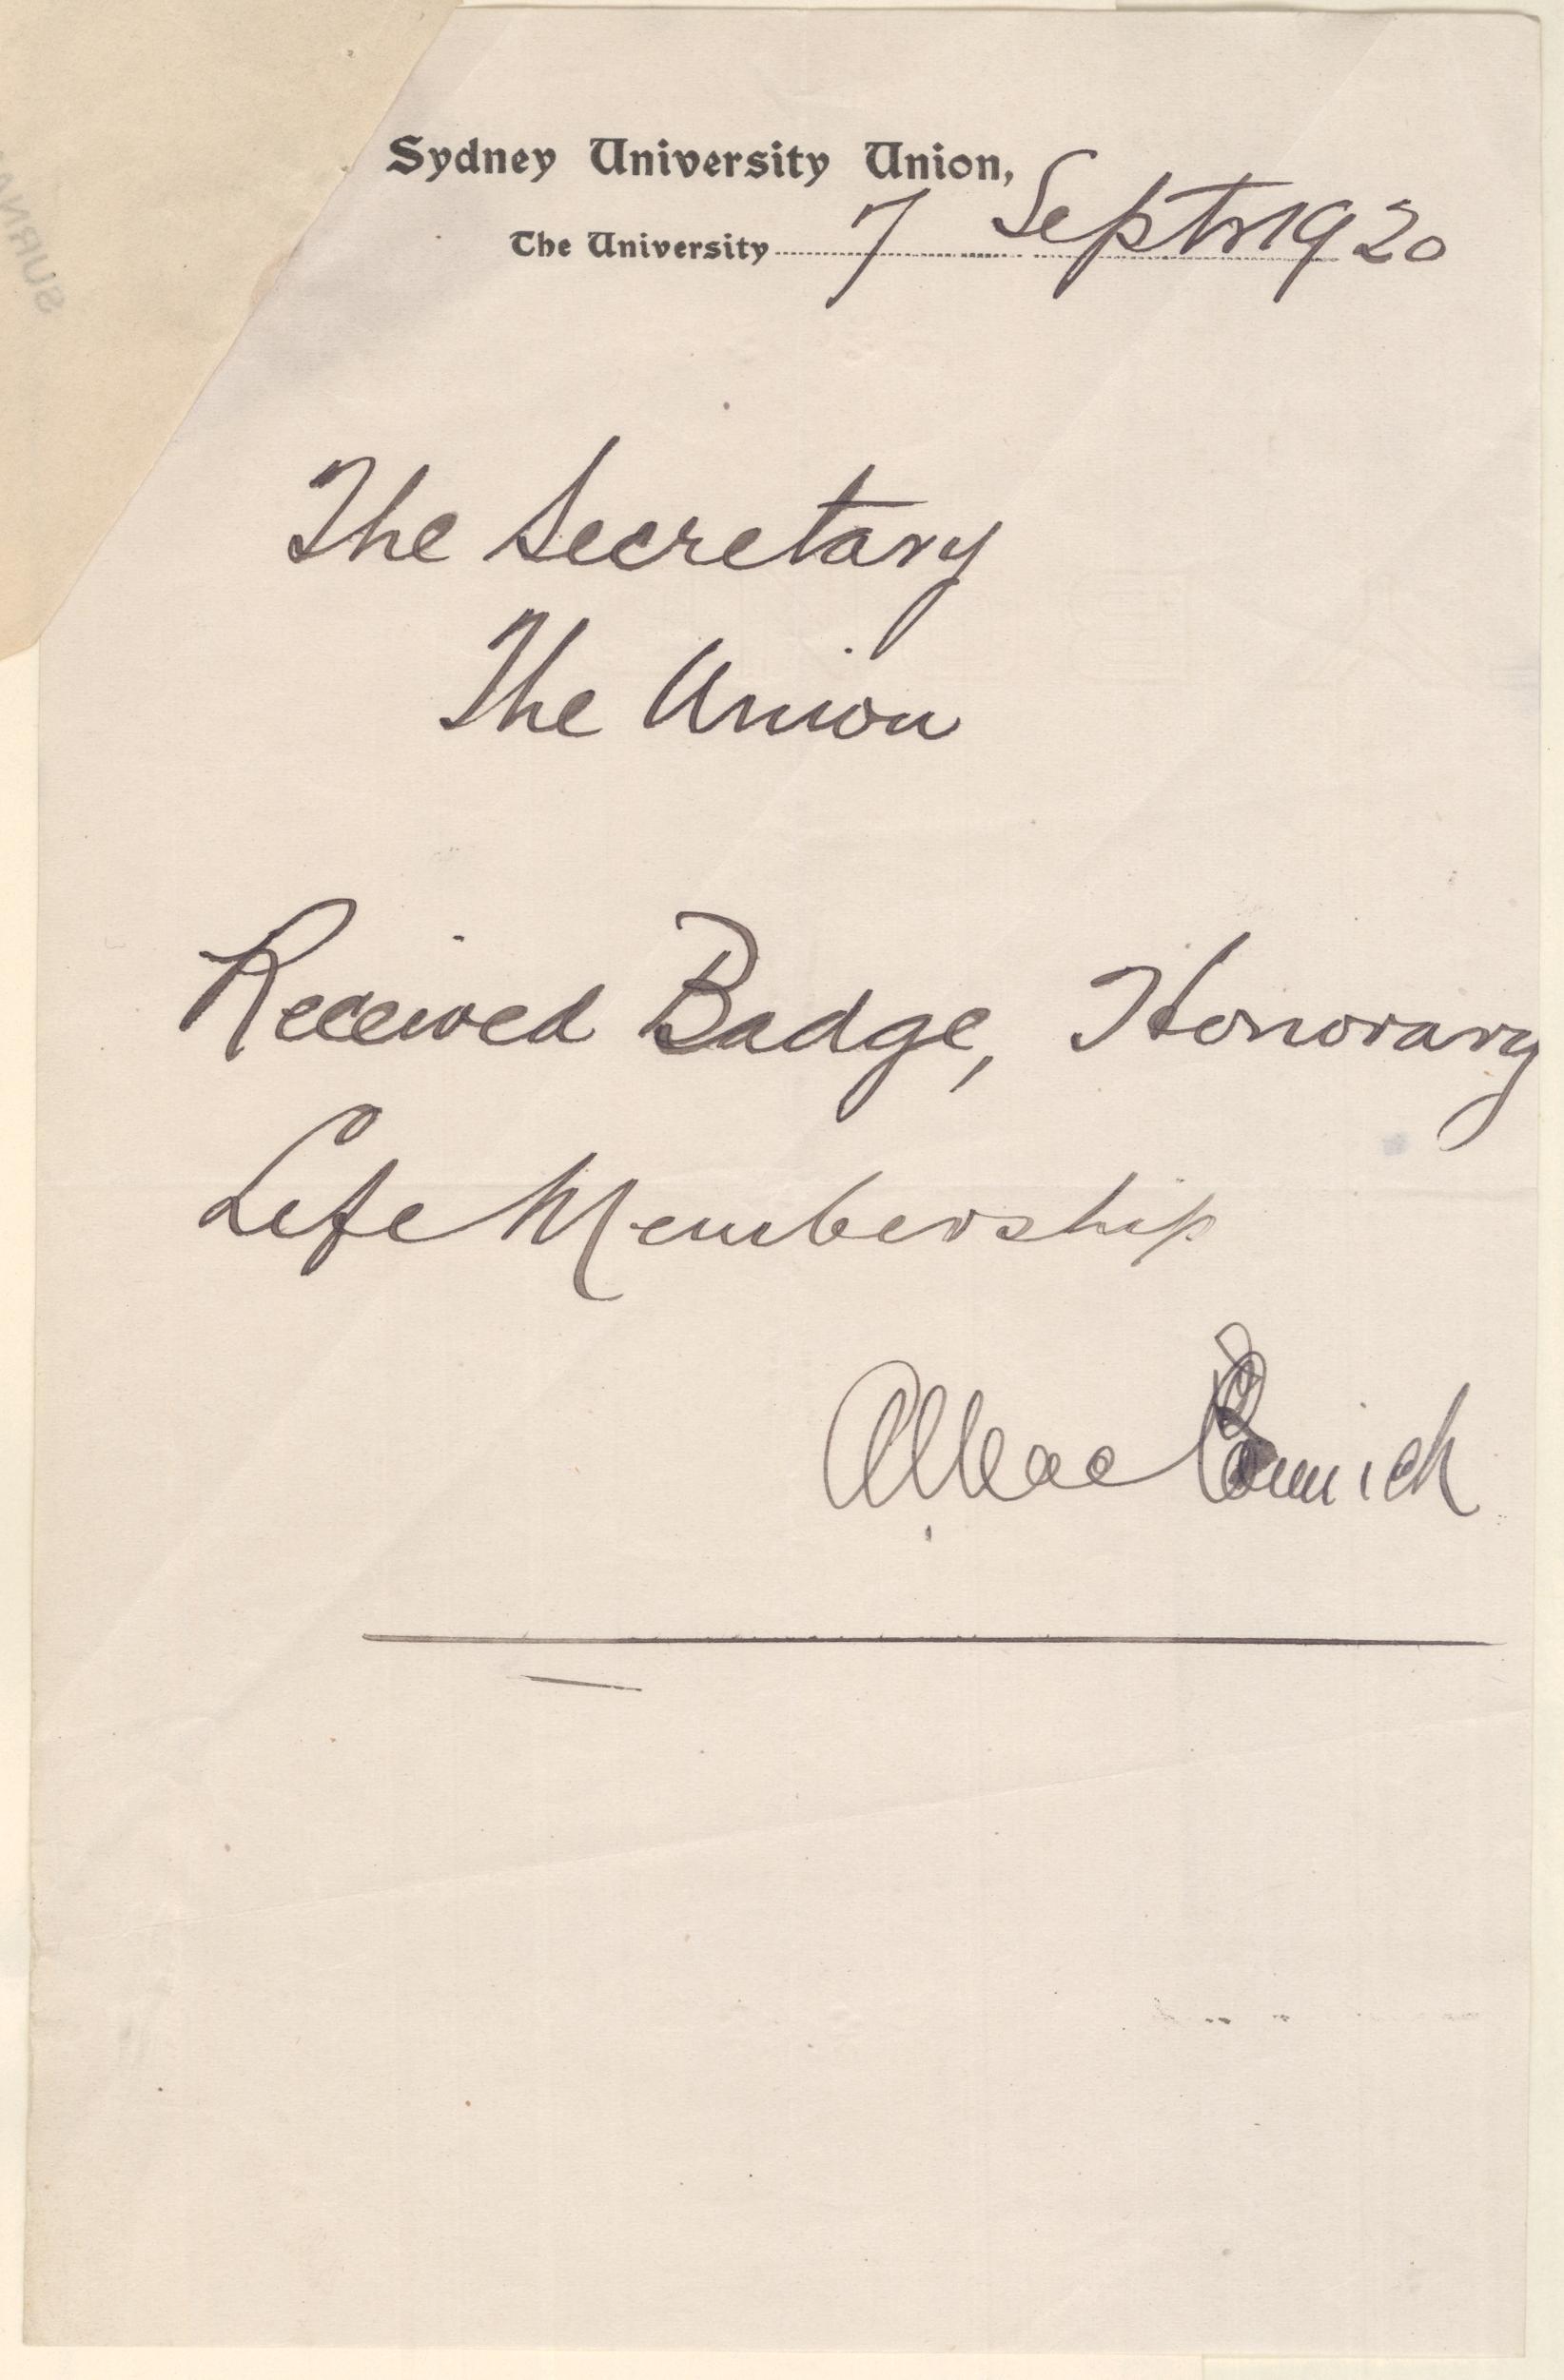 Sydney University Union,
The University 7 Septr 1920
The Secretary
The Union
Received Badge, Honorary
Life Membership
A MacCormick